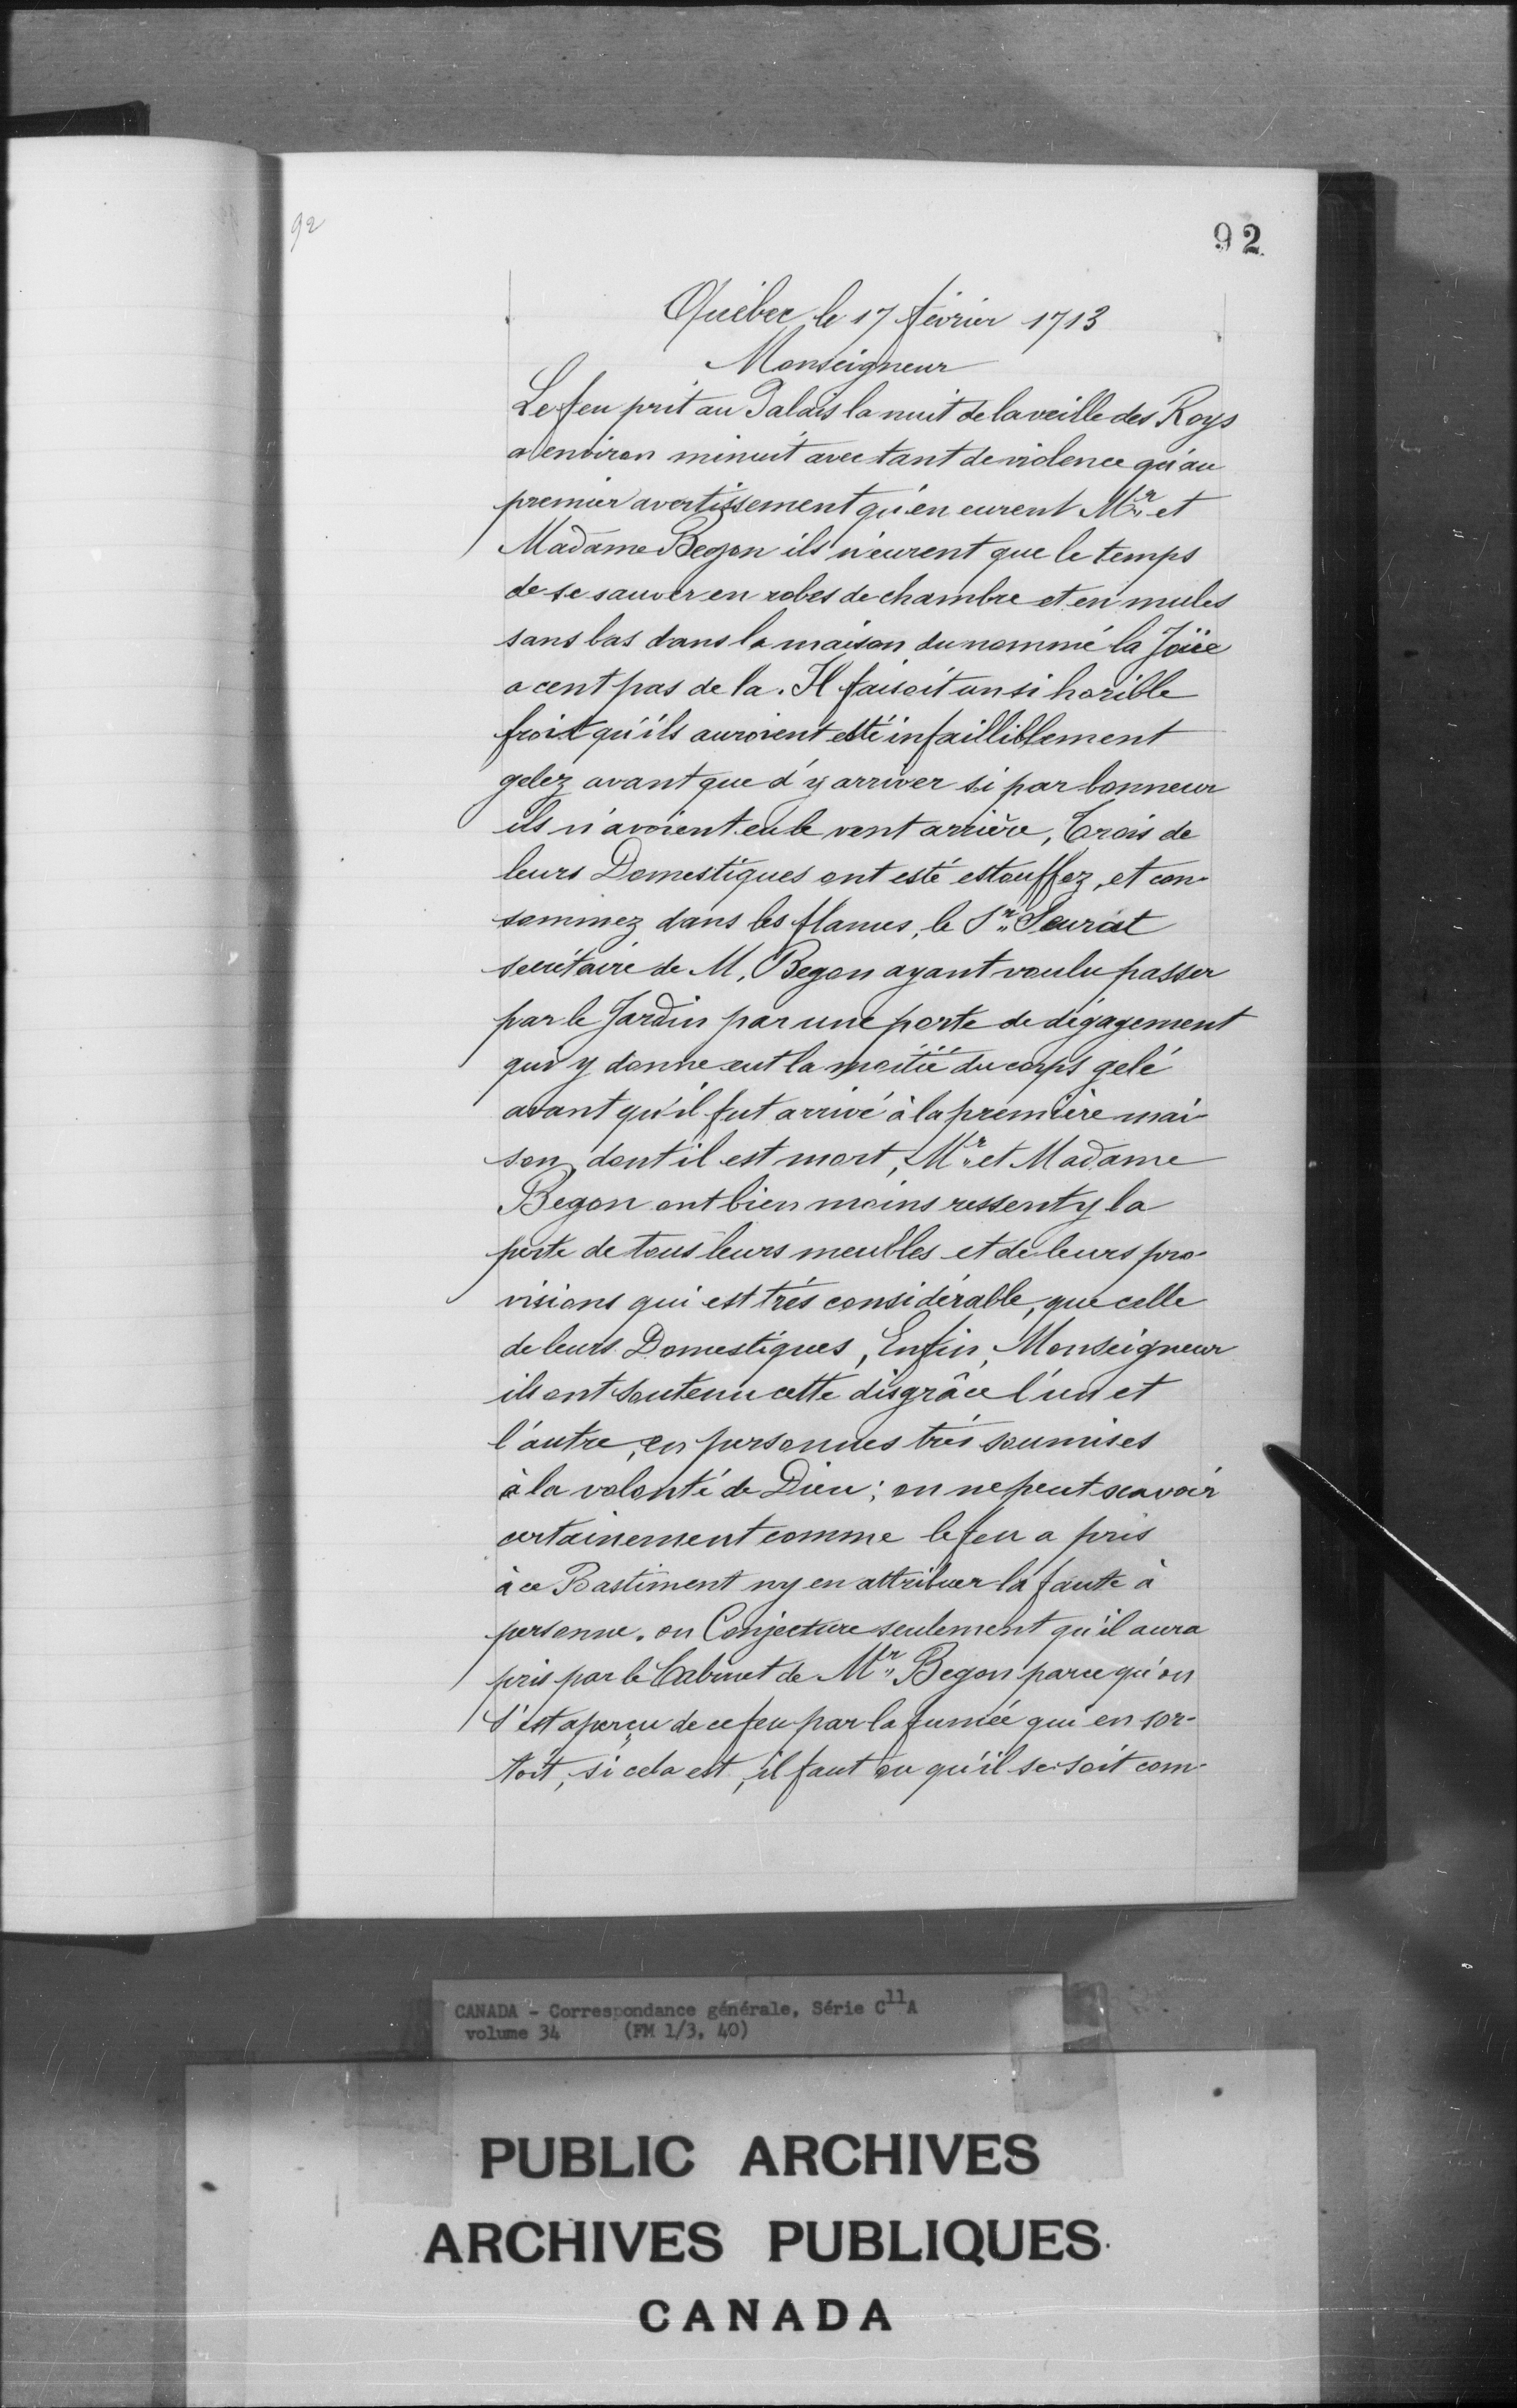 92
92
Québec le 17 février 1713
Monseigneur
Le feu prit au Palais la nuit de la veille des Roys
a environ minuit avec tant de violence qu'au
premier avertissement qu'en eurent Mr et
Madame Begon ils n'eurent que le temps
de se sauver en robes de chambre et en mules
sans bas dans la maison du nommé la Joüe
a cent pas de la. Il faisoit un si horible
froit qu'ils auroient esté infailliblement
gelez avant que d'y arriver si par bonneur
ils n'avoient eu le vent arrière, Trois de
leurs Domestiques ont esté estouffez, et con-
sommez dans les flames, le Sr Seurat
secrétaire de M. Begon ayant voulu passer
par le Jardin par une porte de dégagement
qui y donne eut la moitié du corps gelé
avant qu'il fut arrivé à la première mai-
son, dont il est mort, Mr et Madame
Begon ont bien moins ressenty la
perte de tous leurs meubles et de leurs pro-
visions qui est très considérable, que celle
de leurs Domestiques, Enfin, Monseigneur
ils ont soutenu cette disgrâce l'un et
l'autre, en personnes très soumises
à la volonté de Dieu; on ne peut scavoir
certainement comme le feu a pris
à ce Bastiment ny en attribuer la faute à
personne. on Conjecture seulement qu'il aura
pris par le Cabinet de Mr Begon parce qu'on
s'est aperçu de ce feu par la fumée qui en sor-
toit, si cela est, il faut ou qu'il se soit com-
CANADA - Correspondance générale, Série C11A
volume 34 (FM 1/3, 40)
PUBLIC ARCHIVES
ARCHIVES PUBLIQUES
CANADA